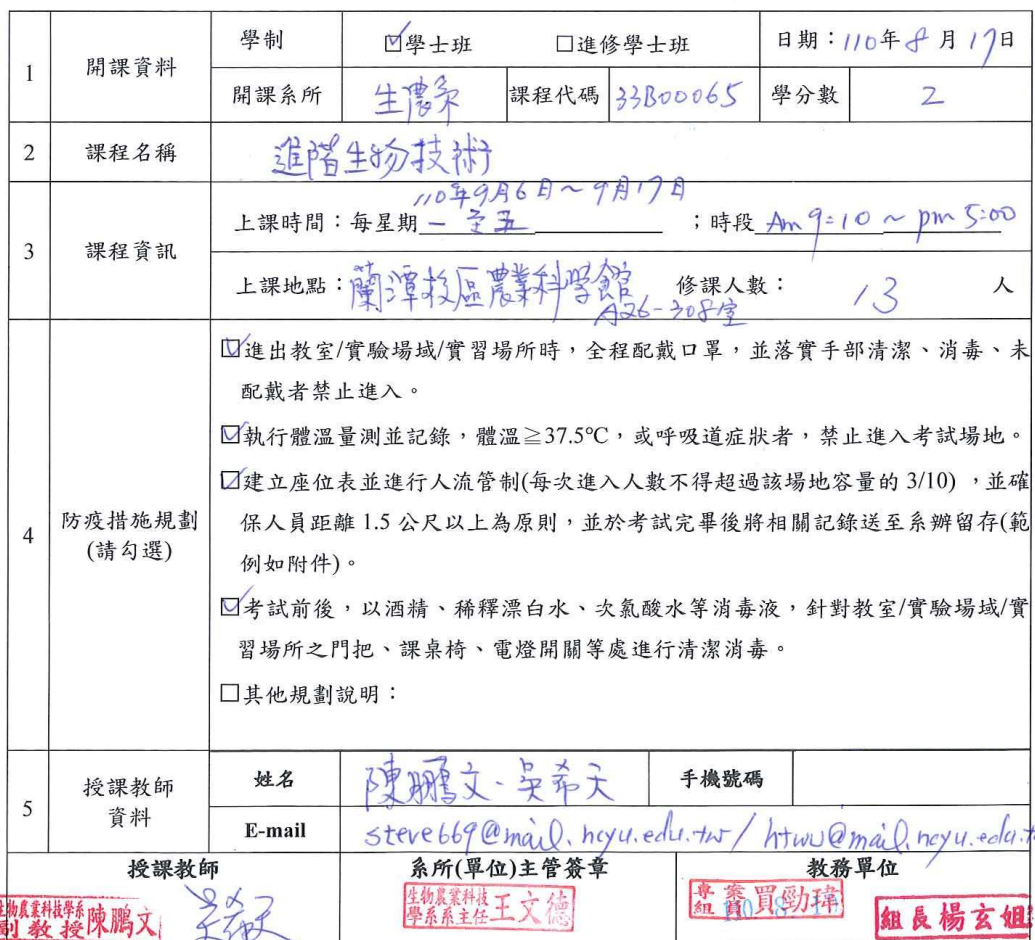 1 開課資料 學制 ☑學士班 □進修學士班 日期：110年8月17日
開課系所 生農系 課程代碼 33B00065 學分數 2
2 課程名稱 進階生物技術
110年9月6日～9月17日
3 課程資訊 上課時間：每星期 一至五 ；時段 Am 9:10 ~ pm 5:00
上課地點：蘭潭校區農業科學館 修課人數： 13 人
A26-308室
☑進出教室/實驗場域/實習場所時，全程配戴口罩，並落實手部清潔、消毒、未
配戴者禁止進入。
☑執行體溫量測並記錄，體溫≧37.5℃，或呼吸道症狀者，禁止進入考試場地。
☑建立座位表並進行人流管制(每次進入人數不得超過該場地容量的 3/10) ，並確
4 防疫措施規劃 保人員距離 1.5 公尺以上為原則，並於考試完畢後將相關記錄送至系辦留存(範
(請勾選)
例如附件)。
☑考試前後，以酒精、稀釋漂白水、次氯酸水等消毒液，針對教室/實驗場域/實
習場所之門把、課桌椅、電燈開關等處進行清潔消毒。
□其他規劃說明：
5 授課教師資料 姓名 陳鵬文、吳希天 手機號碼
E-mail steve669@mail.ncyu.edu.tw/ htwu@mail.ncyu.edu.t
授課教師 系所(單位)主管簽章 教務單位
生物農業科技學系副教授陳鵬文 吳希天 生物農業科技學系系主任王文德 專案組員買勁瑋 組長楊玄姐